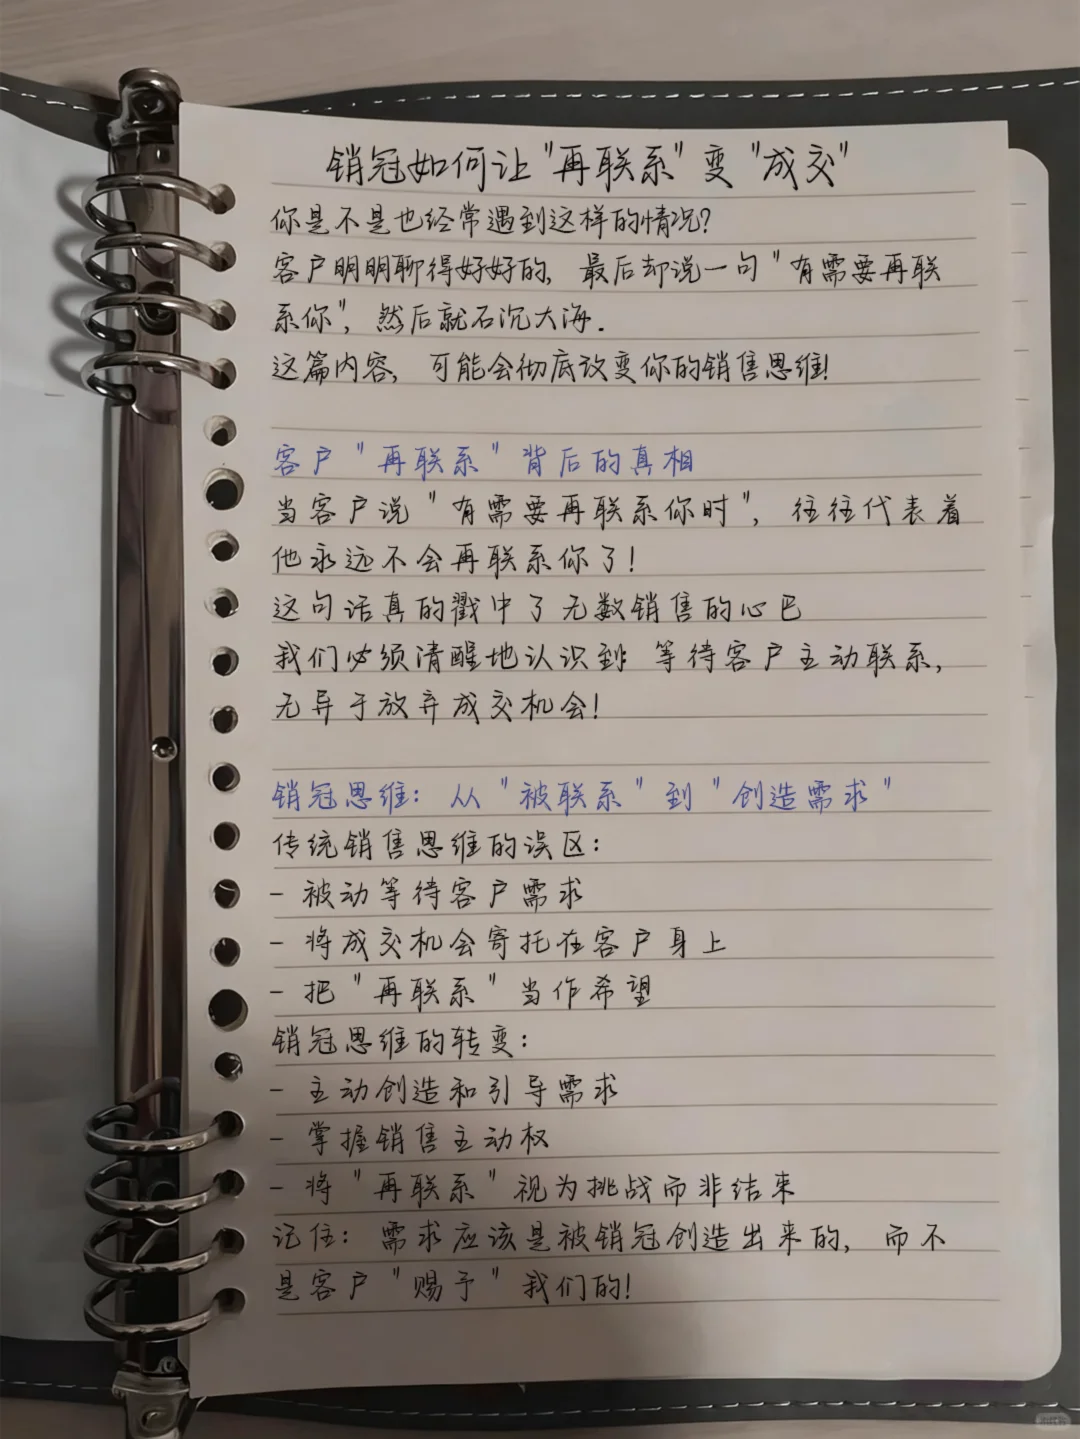 销冠如何让"再联系"变"成交"
你是不是也经常遇到这样的情况？
客户明明聊得好好的，最后却说一句"有需要再联
系你"，然后就石沉大海.
这篇内容，可能会彻底改变你的销售思维!
客户"再联系"背后的真相
当客户说"有需要再联系你时"，往往代表着
他永远不会再联系你了!
这句话真的戳中了无数销售的心巴
我们必须清醒地认识到 等待客户主动联系，
无异于放弃成交机会!
销冠思维：从"被联系"到"创造需求"
传统销售思维的误区：
- 被动等待客户需求
- 将成交机会寄托在客户身上
- 把"再联系"当作希望
销冠思维的转变：
- 主动创造和引导需求
- 掌握销售主动权
- 将"再联系"视为挑战而非结束
记住：需求应该是被销冠创造出来的，而不
是客户"赐予"我们的!